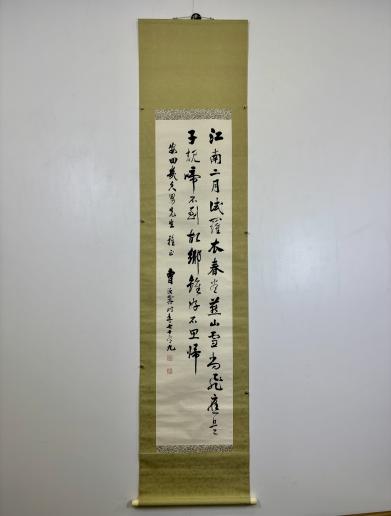 江南二月試羅衣春尽燕山雪尚飛應是
子規啼不到故鄉雖好不思歸
安田幾久男先生 雅正
曹汝霖時年七十九